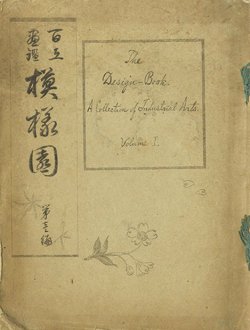 百工
畫鑑
模樣園
第壹編
The
Design-Book.
A Collection of Industrial Arts.
Volume I.